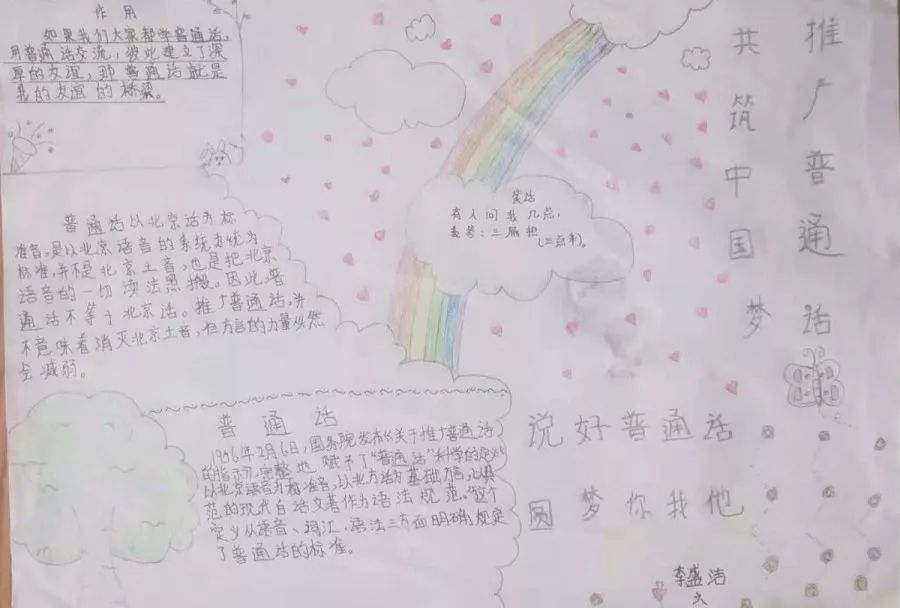 作用
如果我们大家都学普通话,
用普通话交流,彼此建立了深
厚的友谊,那普通话就是
我的友谊的桥梁。
推广普通话
共筑中国梦
笑话
有人问我几点,
我答:三点把
(三点半)。
普通话以北京话为标
准音,是以北京语音的系统为
标准,并不是北京土音,也是把北京
语音的一切读法照搬。因此,普
通话不等于北京话。推广普通话,并
不意味着消灭北京土音,但方言的力量必然
会减弱。
普通话
1956年2月6日,国务院发布《关于推广普通话
的指示》,完整地赋予了“普通话”科学的定义
以北京语音为标准音,以北方话为基础方言,以典
范的现代白话文著作为语法规范。"这个
定义从语音、词汇、语法三方面明确规定
了普通话的标准。
说好普通话
圆梦你我他
李盛洁
六